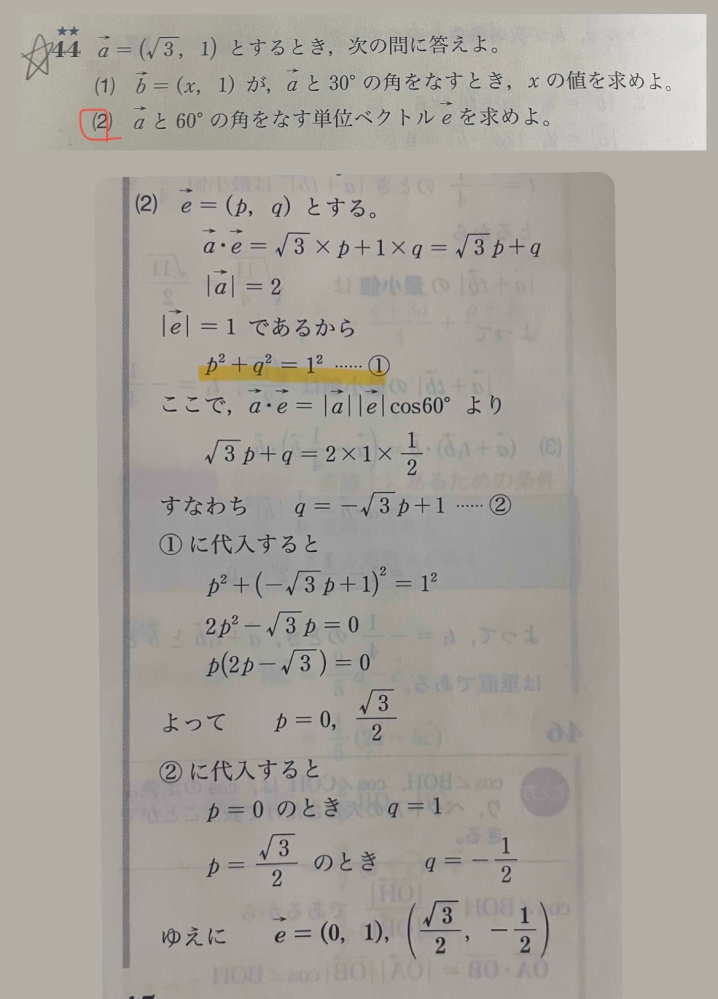 ★★
44 a⃗ = (√3, 1) とするとき，次の問に答えよ。
(1) b⃗ = (x, 1) が，a⃗ と 30° の角をなすとき，x の値を求めよ。
(2) a⃗ と 60° の角をなす単位ベクトル e⃗ を求めよ。
(2) e⃗ = (p, q) とする。
a⃗・e⃗ = √3 × p + 1 × q = √3 p + q
|a⃗| = 2
|e⃗| = 1 であるから
p² + q² = 1² …… ①
ここで，a⃗・e⃗ = |a⃗||e⃗|cos60° より
√3 p + q = 2 × 1 × 1/2
すなわち q = −√3 p + 1 …… ②
① に代入すると
p² + (−√3 p + 1)² = 1²
2p² − √3 p = 0
p(2p − √3) = 0
よって p = 0, √3/2
② に代入すると
p = 0 のとき q = 1
p = √3/2 のとき q = −1/2
ゆえに e⃗ = (0, 1), (√3/2, −1/2)